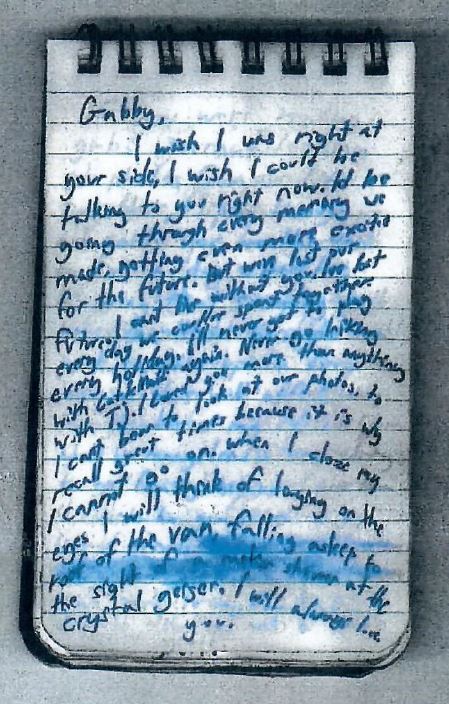 Gabby,
I wish I was right at
your side, I wish I could be
talking to you right now. Id be
going through every memory we
made, getting even more excited
for the future. But weve lost our
future. I cant live without you. Ive lost
every day we could've spent together.
every holiday. Ill never get to play
with again. Never go hiking
with TJ. I loved you more than anything
I cant bear to look at our photos, to
recall great times because it is why
I cannot go on. when I close my
eyes I will think of laughing on the
roof of the van, falling asleep to
the sight of a meteor shower at the
crystal geiser. I will always love
you.